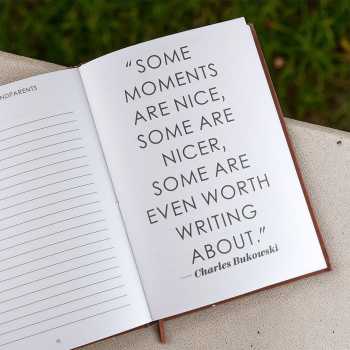 “SOME
MOMENTS
ARE NICE,
SOME ARE
NICER,
SOME ARE
EVEN WORTH
WRITING
ABOUT.”
— Charles Bukowski